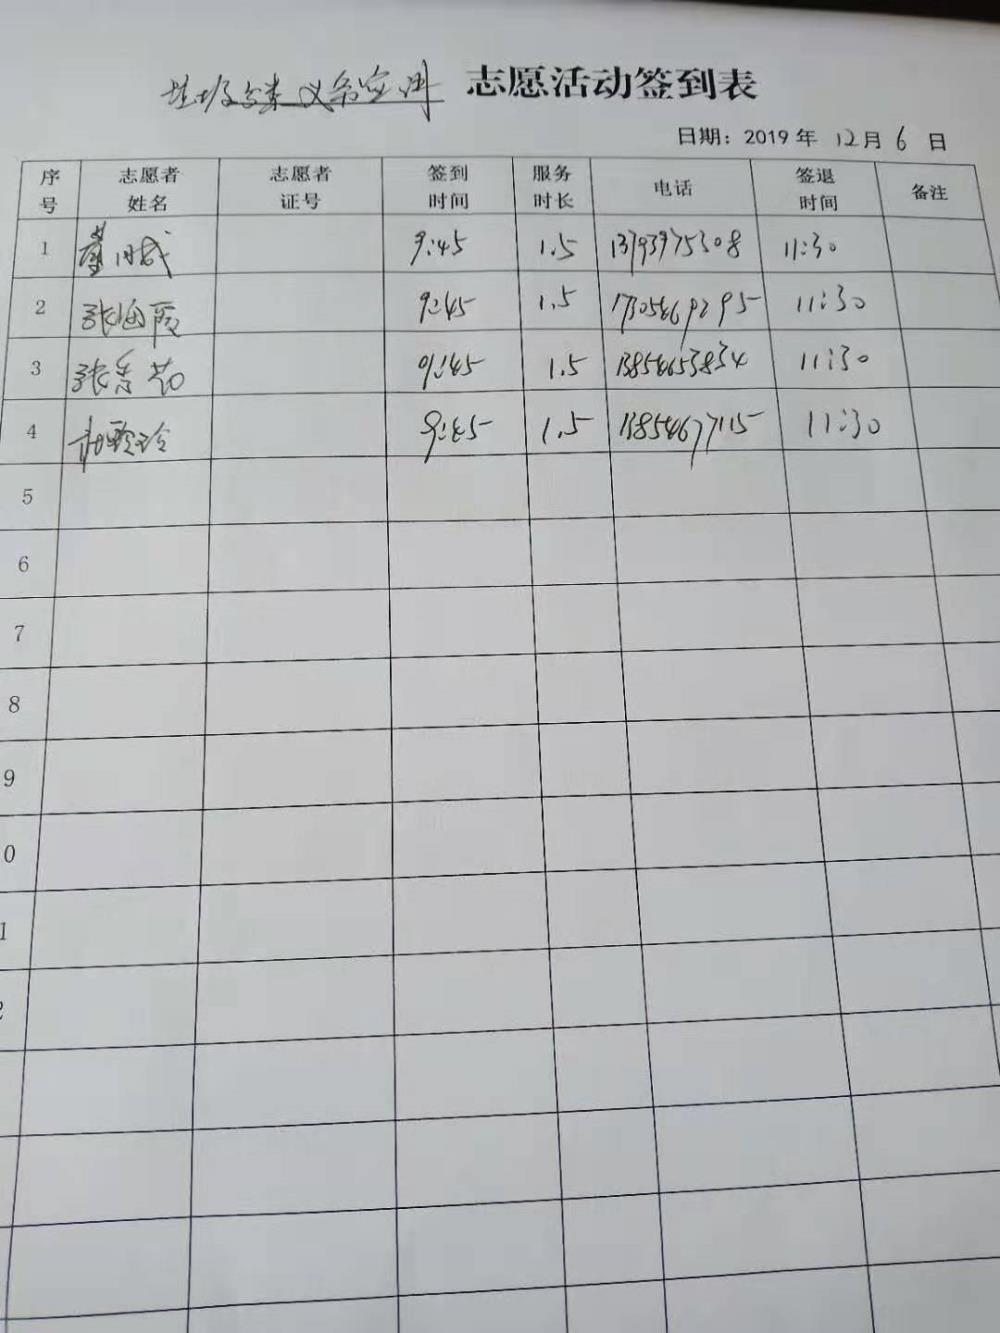 垃圾分类义务宣讲 志愿活动签到表
日期：2019年 12月 6 日
序号 志愿者姓名 志愿者证号 签到时间 服务时长 电话 签退时间 备注
1 9:45 1.5 13793975308 11:30
2 张海霞 9:45 1.5 17305469295 11:30
3 张秀芬 9:45 1.5 13854653834 11:30
4 9:45 1.5 13854677115 11:30
5
6
7
8
9
0
1
2